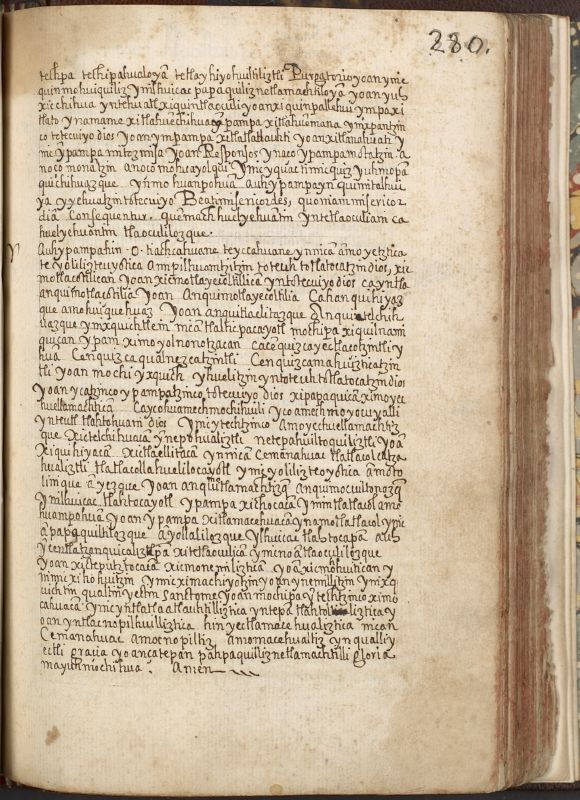 280.
techpa techipahualoya tetlayhiyohuiltiliztli Purgotorio yoan ynic
quinmohuiquiliz ynilhuicac papaquiliznetlamachtiloya yoan yuh
xicchihua yntehuatl xiquintlaoculi yoan xiquinpallehui ympaxi
tlato ynamame xitlahuechihua ypampa xitlahuemana ymixpantzin
co totecuiyo dios yoan ympampa xitlatlatlauhti yoan xitlanahuati y
nic ypampa mitoz misa yoan Responsos ynaco ypampa motatzin. a
noço monatzin anoço mohuayolqui ynic yquac timiquiz yuhmopa
quichihuazque ynmohuanpohua auh ypampayn quimitalhui
ya yyehuatzin totecuiyo Beati misericordes, quoniam misericor
diã Consequentur. quemach huel yehuantin yntetlaocoliani ca
huel yehuantin tlaoculilozque.
Auh ypampahin .o. tiachcahuane teyccahuane ynnica amo yetztica
te yolilizteuyotica ampilhuantzitzin toteuh totlatocatzin dios, xic
motlaçotilican yoan xicmotlayecoltilica yntotecuiyo dios cayntla
anquimotlaçotilia yoan Anquimotlayecoltilia Ca hanquihiyaz
que amohuiquehuaz yoan anquitlaelitazque Anquintelchih
uazque ymixquich tlein nica tlalticpacayotl mochipa xiquilnami
quican ypam ximoyolnonotzacan cacenquizcayectlacotzintli y
hua Cenquizcaqualnezcatzintli Cenquizcamahuizticatzin
tli yoan mochi yxquich yhuelitzin yntoteuh totlatocatzin dios
yoan ycatzinco ypampatzinco totecuiyo dios xipapaquica ximoyec
huellamachtica Caycohuamechmochihuili yco amechmoyocuyalli
ynteutl tlahtohuani dios ynic ytechtzinco amoyecthuellamachtiz
que xictelchihuaca ynepohualiztli netepahuiltoquiliztli yoa
xiquihiyaca xictlaellitaca ynnica Cemanahuac tlatlacolcatza
hualiztli tlatlacollahuelilocayotl ynic yoliliztceoyotica amoto
limique ayezque yoan anquitlamachtizq anquimocuiltonozq
ynilhuicac tlahtocayotl ypampa xichocaca ymintlatlacol amo
huampohuã yoan ypampa xitlamacehuacã ynamotlatlacol ynic
apapaquiltilozque ayollalilozque ylhuicac tlahtocapa auh
ycentlatzonquicaliztpa xitetlaoculica yminoatlaoculilozque
yoan xictepotztocaca xicmonemiliztica yoa xicmahuitican y
nimicxihohuitzin ynicximachiyotzin yoan ynemilitzin ymixq
uichtin qualtin yectin Sanctome yoan mochipa ytechtzinco ximo
cahuaca ynic yntlatlatlauhtiliztica yntepa tlahtoliztica y
oan yntlacnopilhuiliztica hin yectlamacehualiztica nican
Cemanahuac amocnopiltiz amomacehualtiz ynqualli y
ectli gracia yoan catepan pahpaquilliznetlamachtilli gloria
mayuhmochihua. Amen